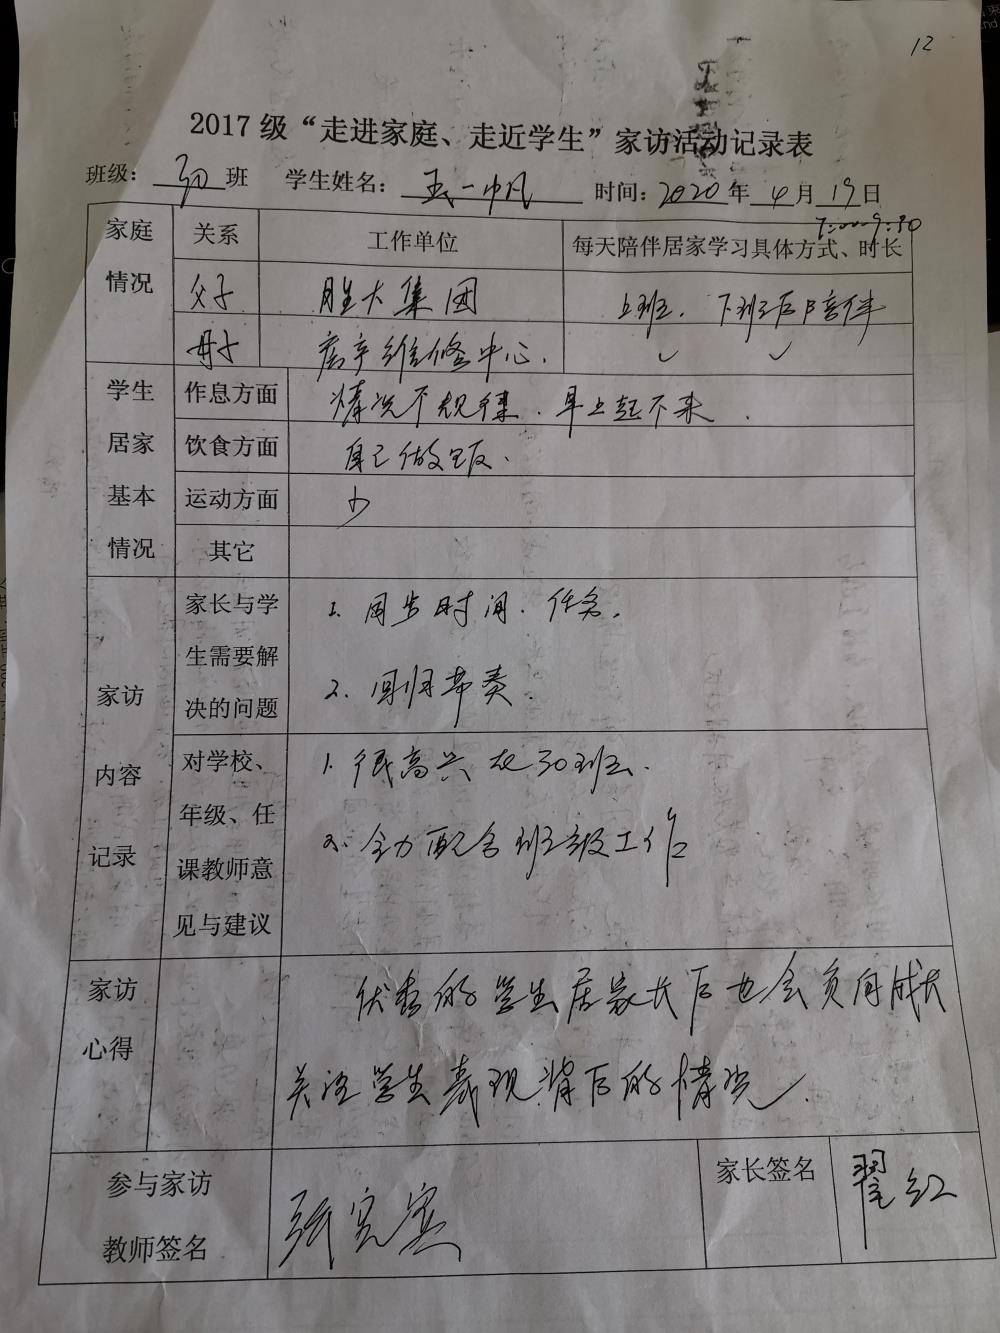 12
2017 级“走进家庭、走近学生”家访活动记录表
班级: 30 班 学生姓名: 一帆 时间: 2020 年 4 月 19 日
9:30
家庭情况 关系 工作单位 每天陪伴居家学习具体方式、时长
父子 胜大集团 上班. 下班后陪伴
母子 房产维修中心. ✓ ✓
学生居家基本情况
作息方面 情况不规律. 早上起不来.
饮食方面 自己做饭.
运动方面 少
其它
家访内容记录
家长与学生需要解决的问题
1. 同步时间. 任务.
2. 回归节奏.
对学校、年级、任课教师意见与建议
1. 很高兴在30班.
2. 全力配合班级工作
家访心得
优秀的学生居家长后也会负向成长
关注学生表现背后的情况.
参与家访教师签名 张宪宾
家长签名 翟红